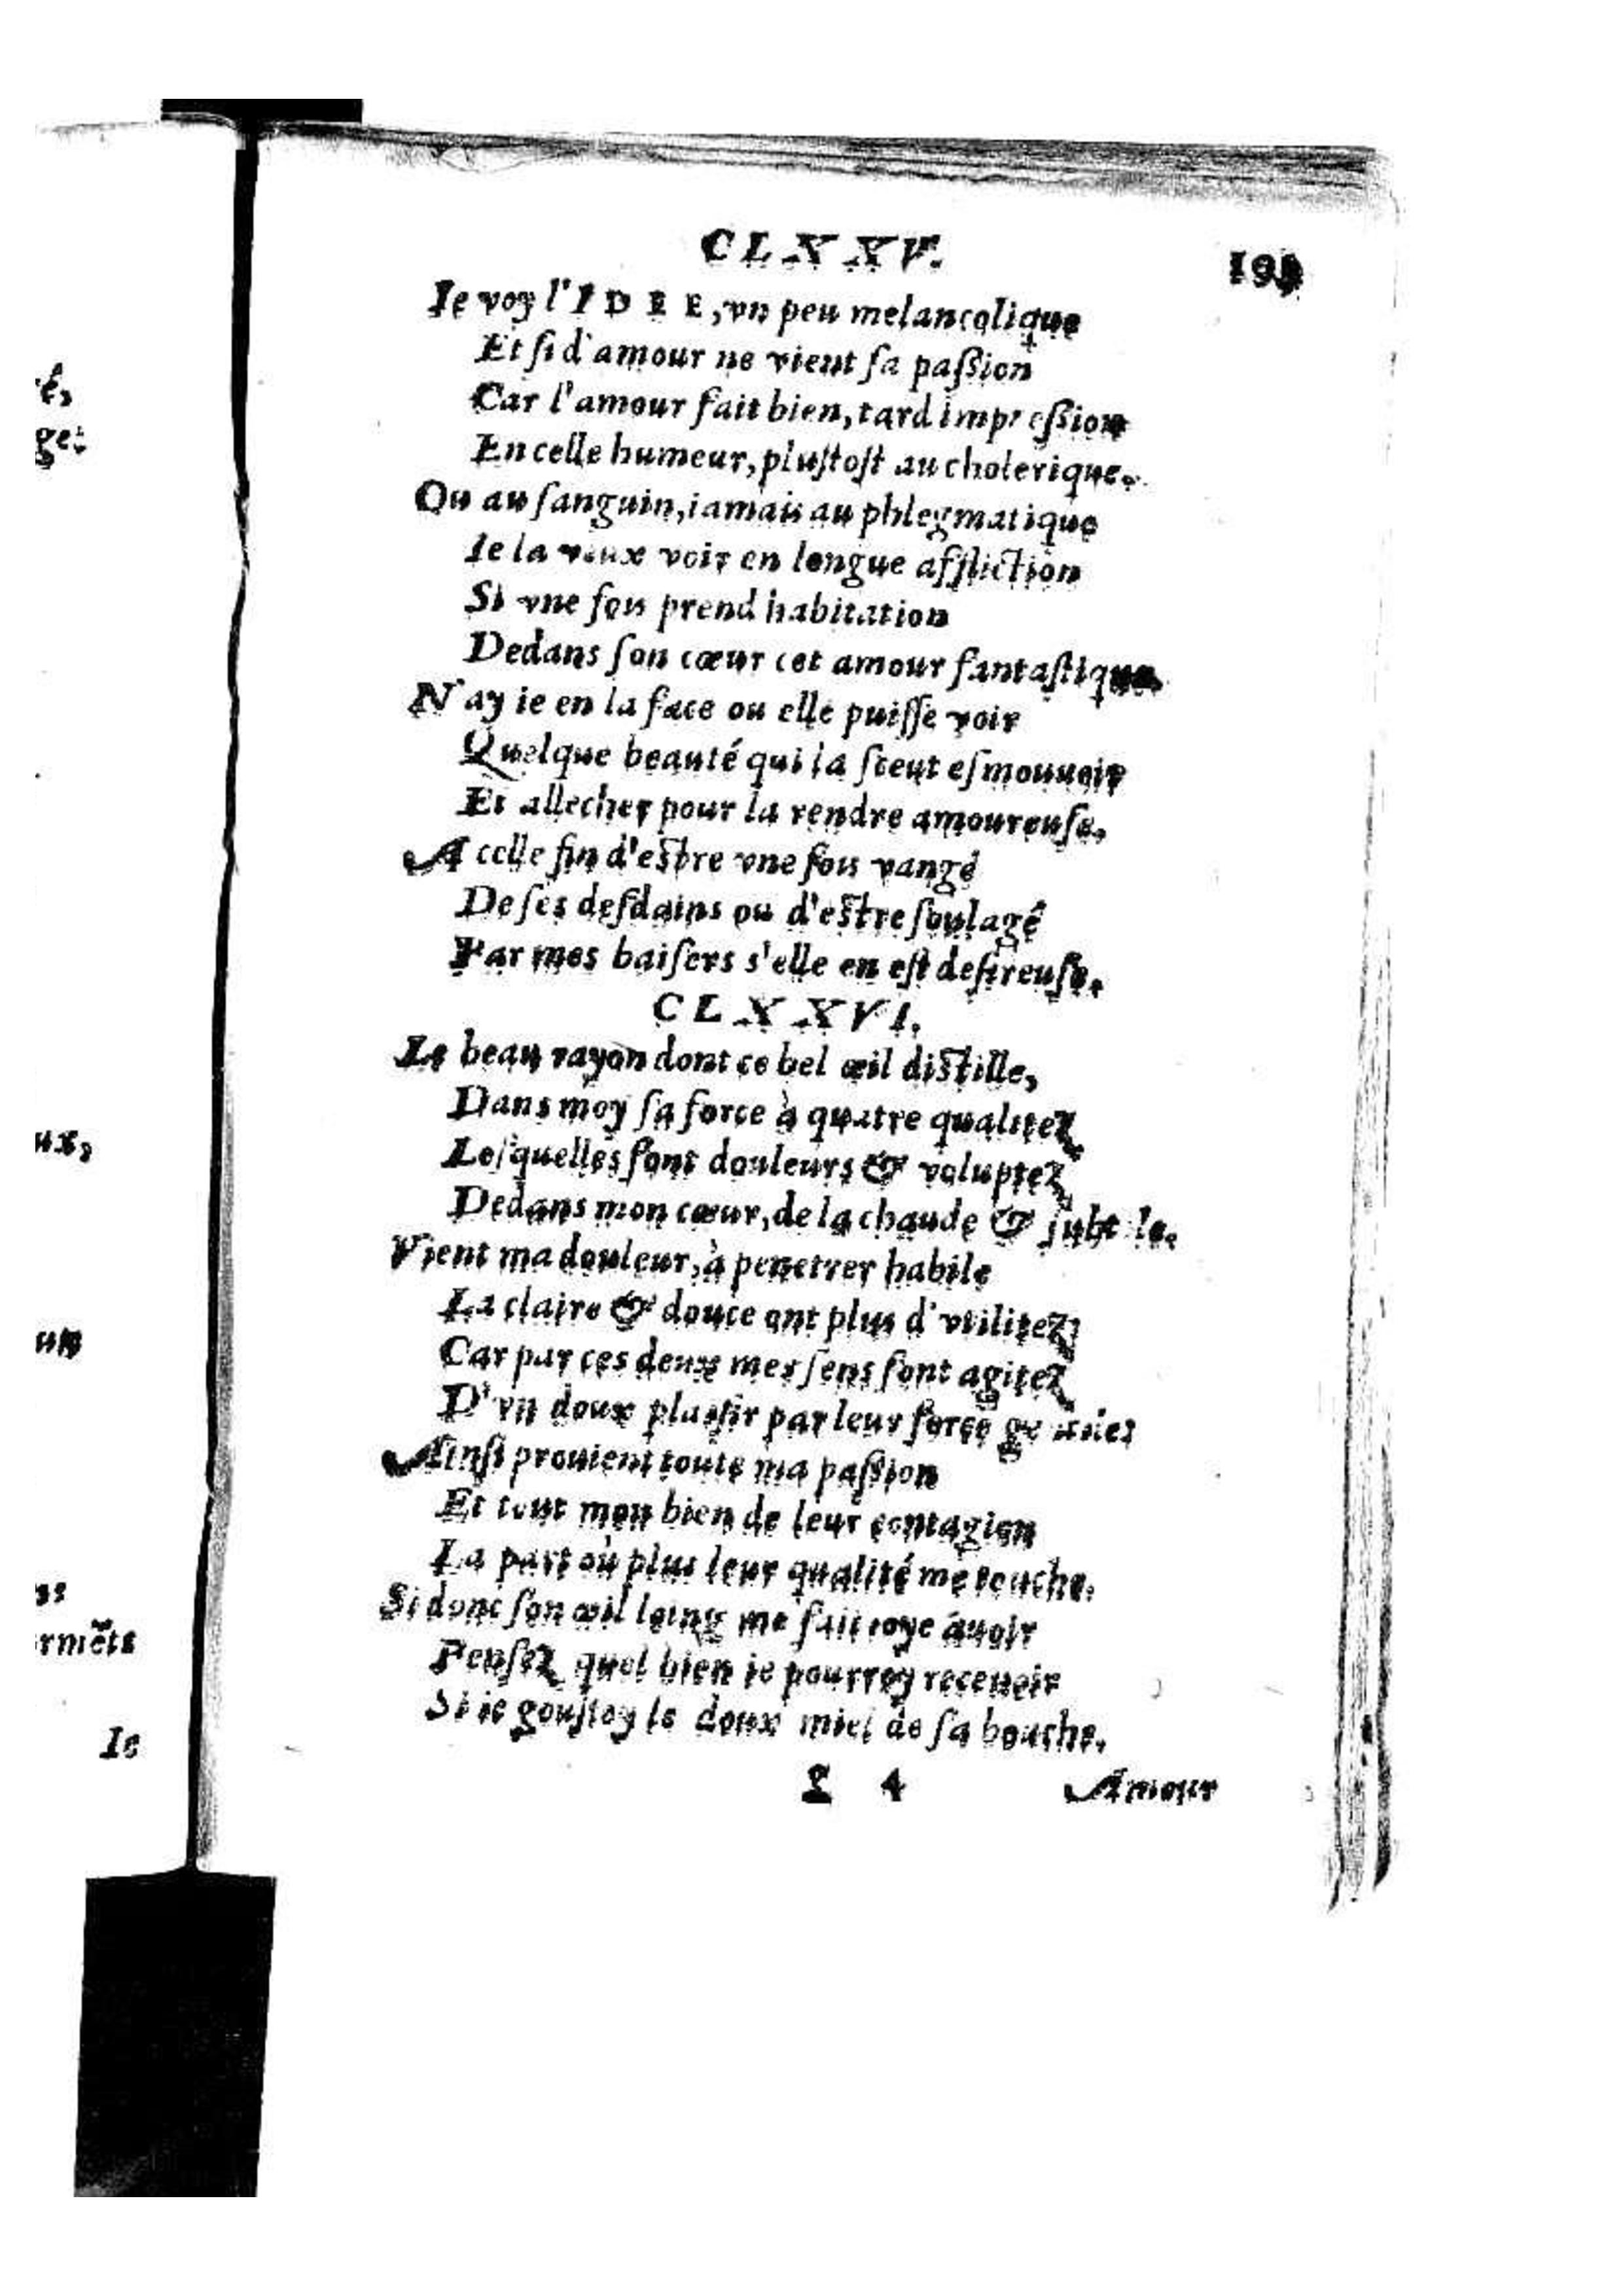 CLXXV.
Ie voy l'IDEE, vn peu melancolique
Et si d'amour ne vient sa paßion
Car l'amour fait bien, tard impreßion
En celle humeur, plustost au cholerique.
Qu au sanguin, iamais au phlegmatique
Ie la veux voir en longue affliction
Si vne fois prend habitation
Dedans son cœur cet amour fantastique.
N'ay ie en la face ou elle puisse voir
Quelque beauté qui la sceut esmouuoir
Et allecher pour la rendre amoureuse.
A celle fin d'estre vne fois vangé
De ses desdains ou d'estre soulagé
Par mes baisers s'elle en est desireuse.
CLXXVI.
Le beau rayon dont ce bel œil distille,
Dans moy sa force à quatre qualitez
Lesquelles font douleurs & voluptez
Dedans mon cœur, de la chaude & subtile.
Vient ma douleur, à penetrer habile
La claire & douce ont plus d'vtilitez
Car par ces deux mes sens sont agitez
D'vn doux plaisir par leur force
Ainsi prouient toute ma paßion
Et tout mon bien de leur contagion
La part où plus leur qualité me touche.
Si donc son œil loing me fait ioye auoir
Pensez quel bien ie pourroy receuoir
Si ie goustoy le doux miel de sa bouche.
4 Amour
é,
get
ux,
un
ns
rmẽts
Ie